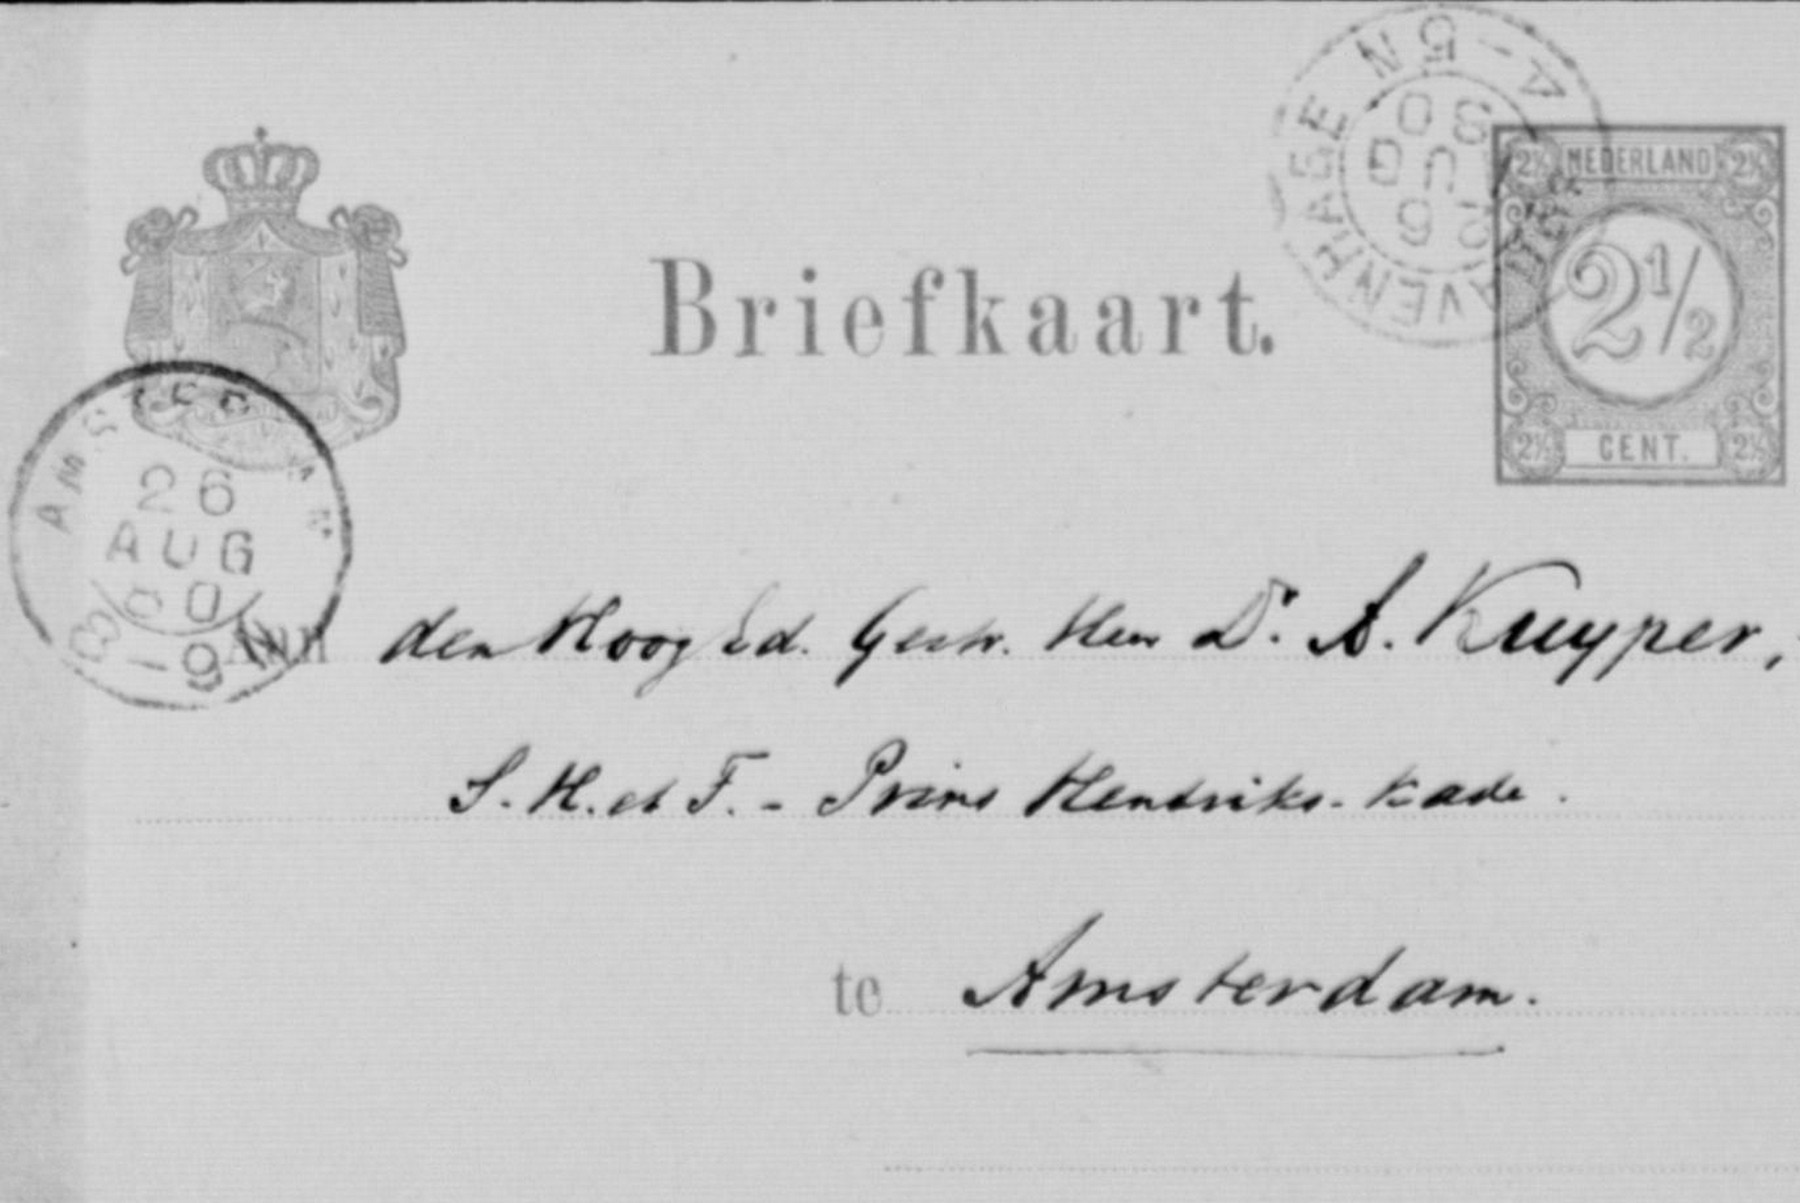 4-5N
'SGRAVENHAGE
26
AUG
90
NEDERLAND
2½ 2½
2½
CENT.
2½ 2½
Briefkaart.
AMSTERDAM
26
AUG
90
8-9
Aan den HoogEd. Gestr. Heer Dr. A. Kuyper,
S. M. et F. - Prins Hendriks-kade.
te Amsterdam.